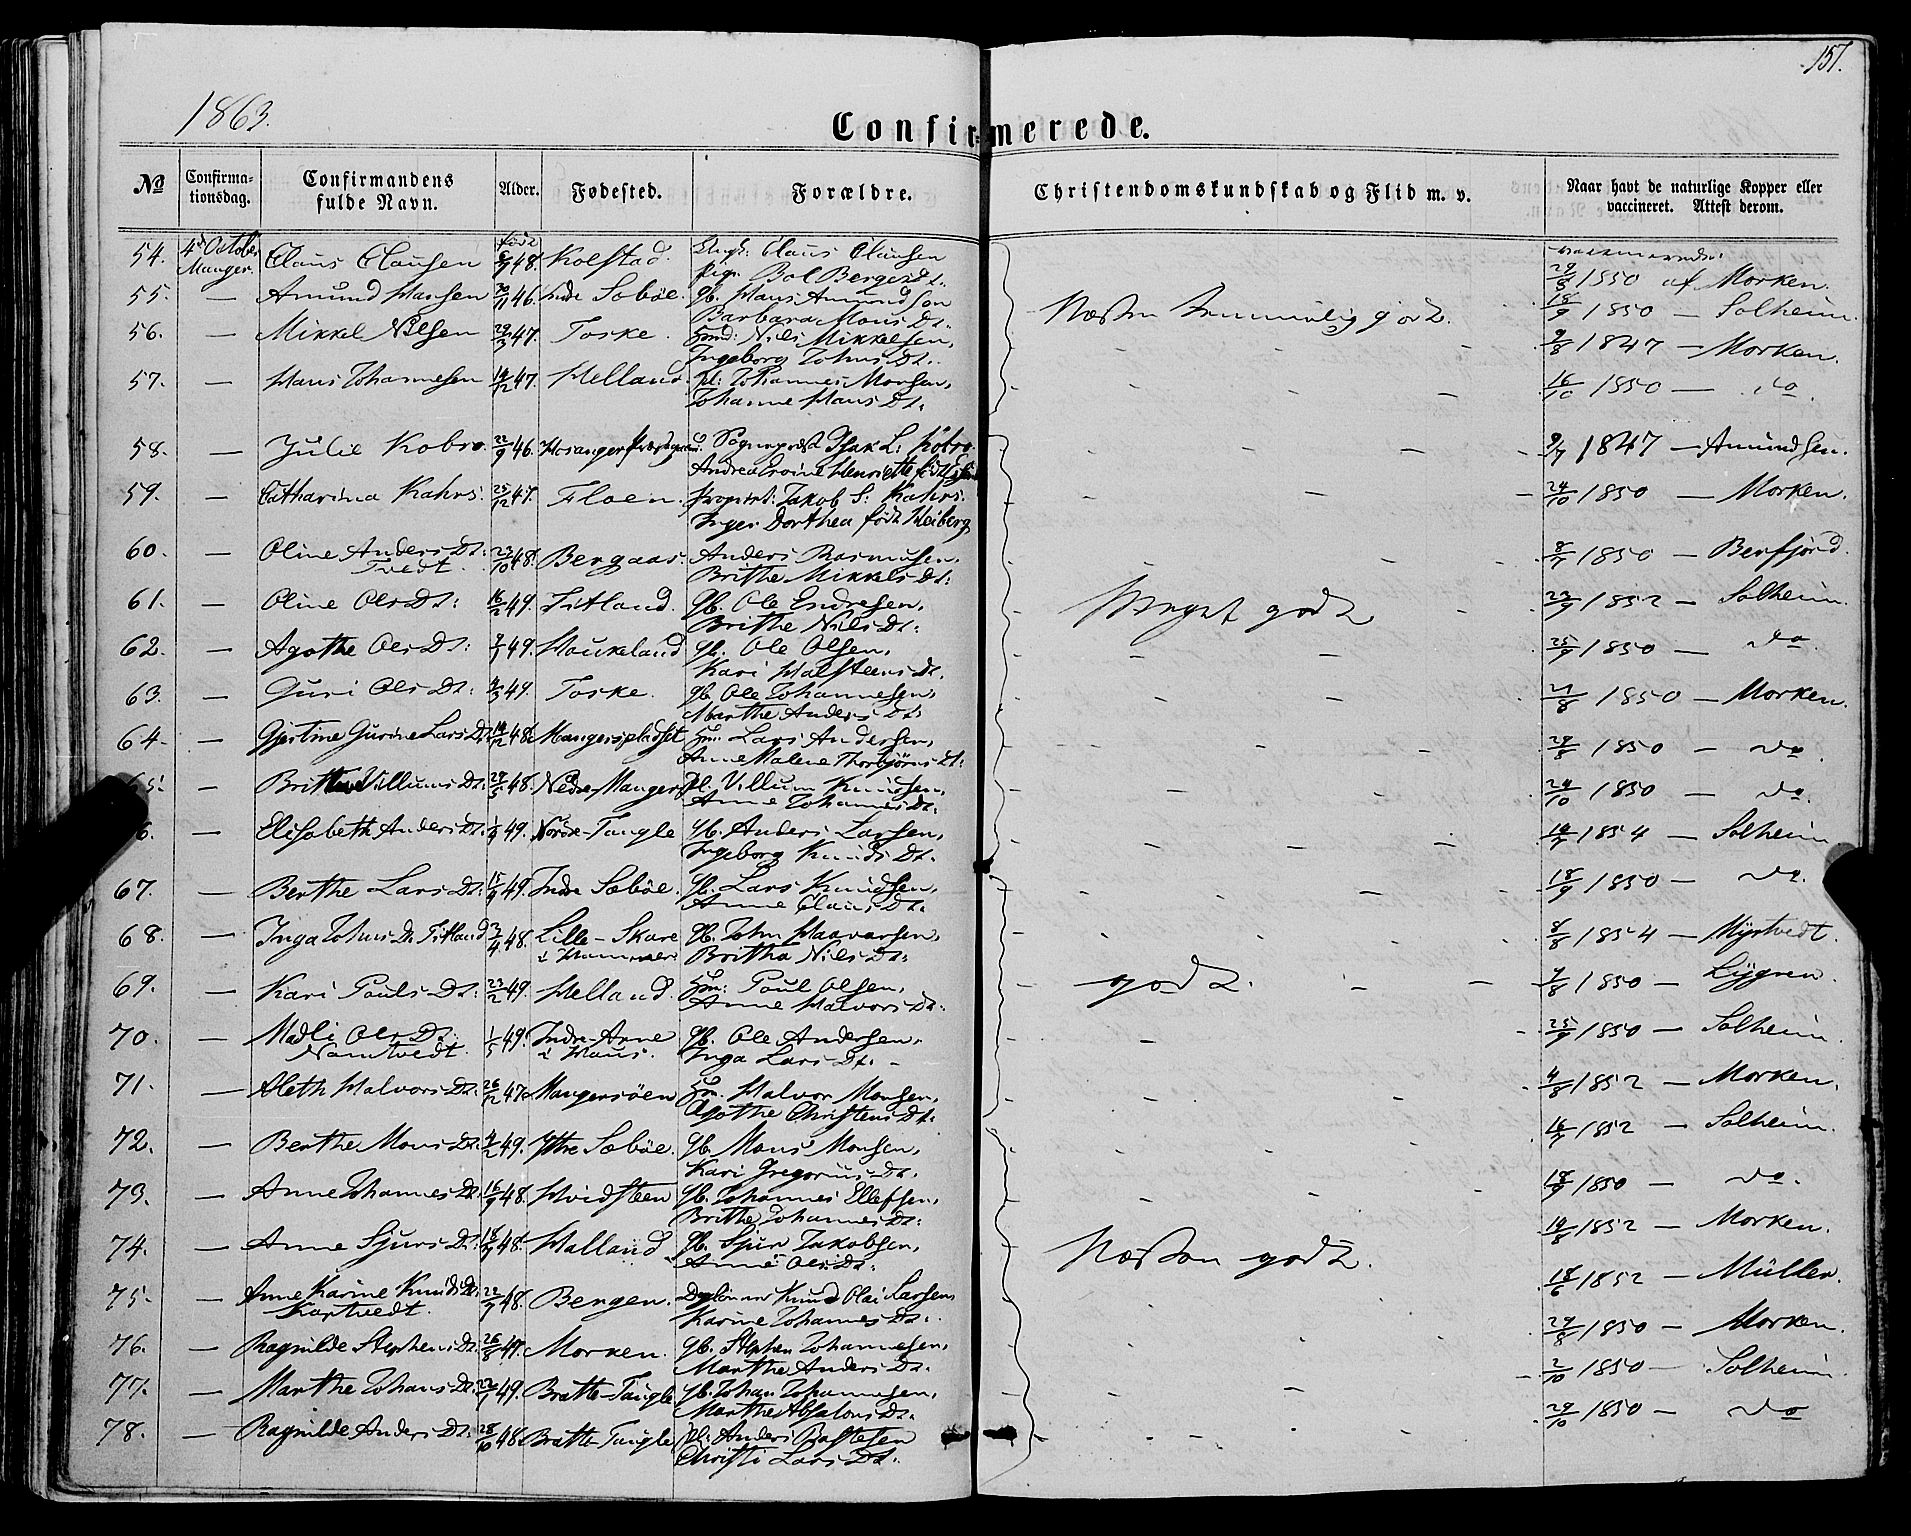 157.
1863.
Confirmerede.
No
Confirmationsdag.
Confirmandens fulde Navn.
Alder.
Fødested.
Forældre.
Christendomskundskab og Flid m. v.
Naar havt de naturlige Kopper eller vaccineret. Attest derom.
54. 4de October Manger. Claus Clausen født 48. Kolstad. Claus Clausen
29/8 1850 af Morken.
55. — Amund Hansen 46. Indre Sæbøe. Gb. Hans Amundsen
Barbara Mons Dt. Næsten temmelig godt. 18/9 1850 — Solheim.
56. — Mikkel Nilsen 29/3 47. Toske. Huusmd: Nils Mikkelsen,
Ingeborg Johns Dt. 9/8 1847 — Morken.
57. — Hans Johannesen 14/12 47. Helland. pl: Johannes Monsen,
Johanne Hans Dt. 16/10 1850 — do.
58. — Julie Kobro 22/9 46. Hosanger Præstegaard. Sognepræst Isak L: Kobro
9/7 1847 — Amundsen.
59. — Catharina Kahrs. 25/12 47. Floen. Propriet: Jakob S: Kahrs.
Inger Dorthea født Heiberg 24/10 1850 — Morken.
60. — Oline Anders Dt: Tvedt. 23/10 48. Bergaas. Anders Rasmusen.
Brithe Mikkels Dt: 8/7 1850 — Berfjord.
61. — Oline Ols Dt: 16/2 49. Titland. Gb. Ole Endresen,
Brithe Nils Dt: Meget godt 23/9 1852 — Solheim.
62. — Agothe Ols Dt: 49. Houkeland Gb. Ole Olsen,
Kari Halsteens Dt. 25/9 1850 — do.
63. — Guri Ols Dt: 49. Toske. Gb. Ole Johannesen,
Marthe Anders Dt: 1850 — Morken.
64. — Gjertine Gurine Lars Dt. 14/12 48. Mangerspladset Hm: Lars Andersen,
Anne Malene Thorbjørns Dt: 1850 — do.
65. — Brithe Villums Dt. 29/5 48. Nedre-Manger pl. Villum Knudsen,
Anne Johannes Dt: 24/10 1850 — do.
66. — Elisabeth Anders Dt. 49. Nordre-Tangle Gb. Anders Larsen,
Ingeborg Knuds Dt. 1854 — Solheim
67. — Berthe Lars Dt: 49. Indre Sæbøe. Gb. Lars Knudsen,
Anne Claus Dt. 18/9 1850 — do.
68. — Inga Johns Dt. Titland 48. Lille-Skare i Hammer Gb. John Haavarsen,
Britha Nils Dt: 8/8 1854 — Myrtvedt.
69. — Kari Pouls Dt: 23/2 49. Helland. Hm: Poul Olsen,
Anne Halvors Dt. godt. 1850 — Lygren.
70. — Madli Ols Dt. Namtvedt. 1/5 49. Indre-Arne i Haus. Gb. Ole Andersen,
Inga Lars Dt. 25/9 1850 — Solheim.
71. — Aleth Halvors Dt: 26/12 47. Mangersøen Hm. Halvor Monsen,
Agothe Christens Dt. 4/8 1852 — Morken.
72. — Berthe Mons Dt. 49. Ytre Sæbøe. Gb. Mons Monsen,
Kari Gregorius Dt. 16/7 1852 — Solheim.
73. — Anne Johannes Dt. 16/9 48. Hvidsteen Gb. Johannes Ellefsen,
Brithe Johannes Dt: 18/9 1850 — do.
74. — Anne Sjurs Dt: 48. Halland Gb. Sjur Jakobsen,
Anne Ols Dt: Næsten godt. 1852 — Morken.
75. — Anne Karine Knuds Dt. Kartvedt. 22/9 48. Bergen. Knud Olai Larsen
Karine Johannes Dt. 18/6 1852 — Müller.
76. — Ragnilde Stephens Dt. 26/8 49. Morken. Gb. Stephen Johannesen,
Marthe Anders Dt. 29/8 1850 — Morken.
77. — Marthe Johans Dt. 49. Bratte-Tangle Gb. Johan Johannesen,
Marthe Absalons Dt. 2/10 1850 — Solheim.
78. — Ragnilde Anders Dt: 28/10 48. Bratte-Tangle pl: Anders Rastesen
Christi Lars Dt. 29/10 1850 — do